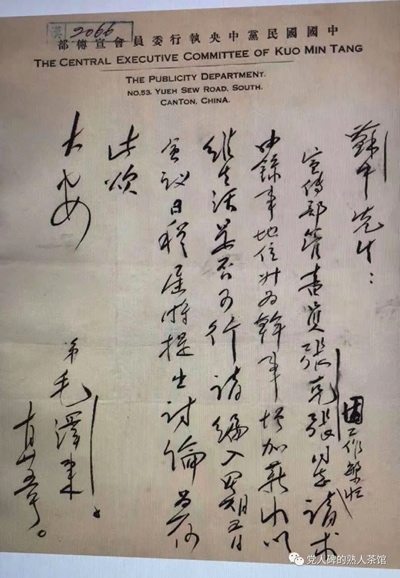 2066
中國國民黨中央執行委員會宣傳部
THE CENTRAL EXECUTIVE COMMITTEE OF KUO MIN TANG
THE PUBLICITY DEPARTMENT.
NO.53. YUEH SEW ROAD, SOUTH.
CANTON, CHINA.
平先生：
宣傳部管書員張克張君請求
因工作繁忙
由錄事地位升為幹事增加薪水以
維生活是否可行請編入月五日
會議日程屆時提出討論為荷
此頌
大安
弟毛澤東。
党人碑的熟人茶馆